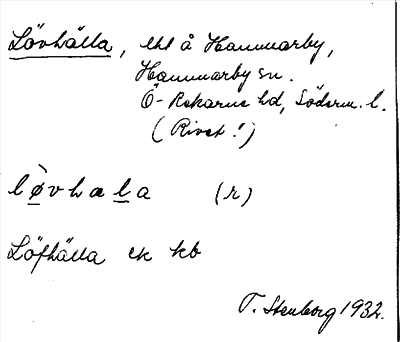 Lövhälla, lht å Hammarby,
Hammarby sn.
Ö-Rekarne hd, Söderm. l.
(Rivet!)
lø̀vhæla (r)
Löfhälla ek kb
T. Stenborg 1932.